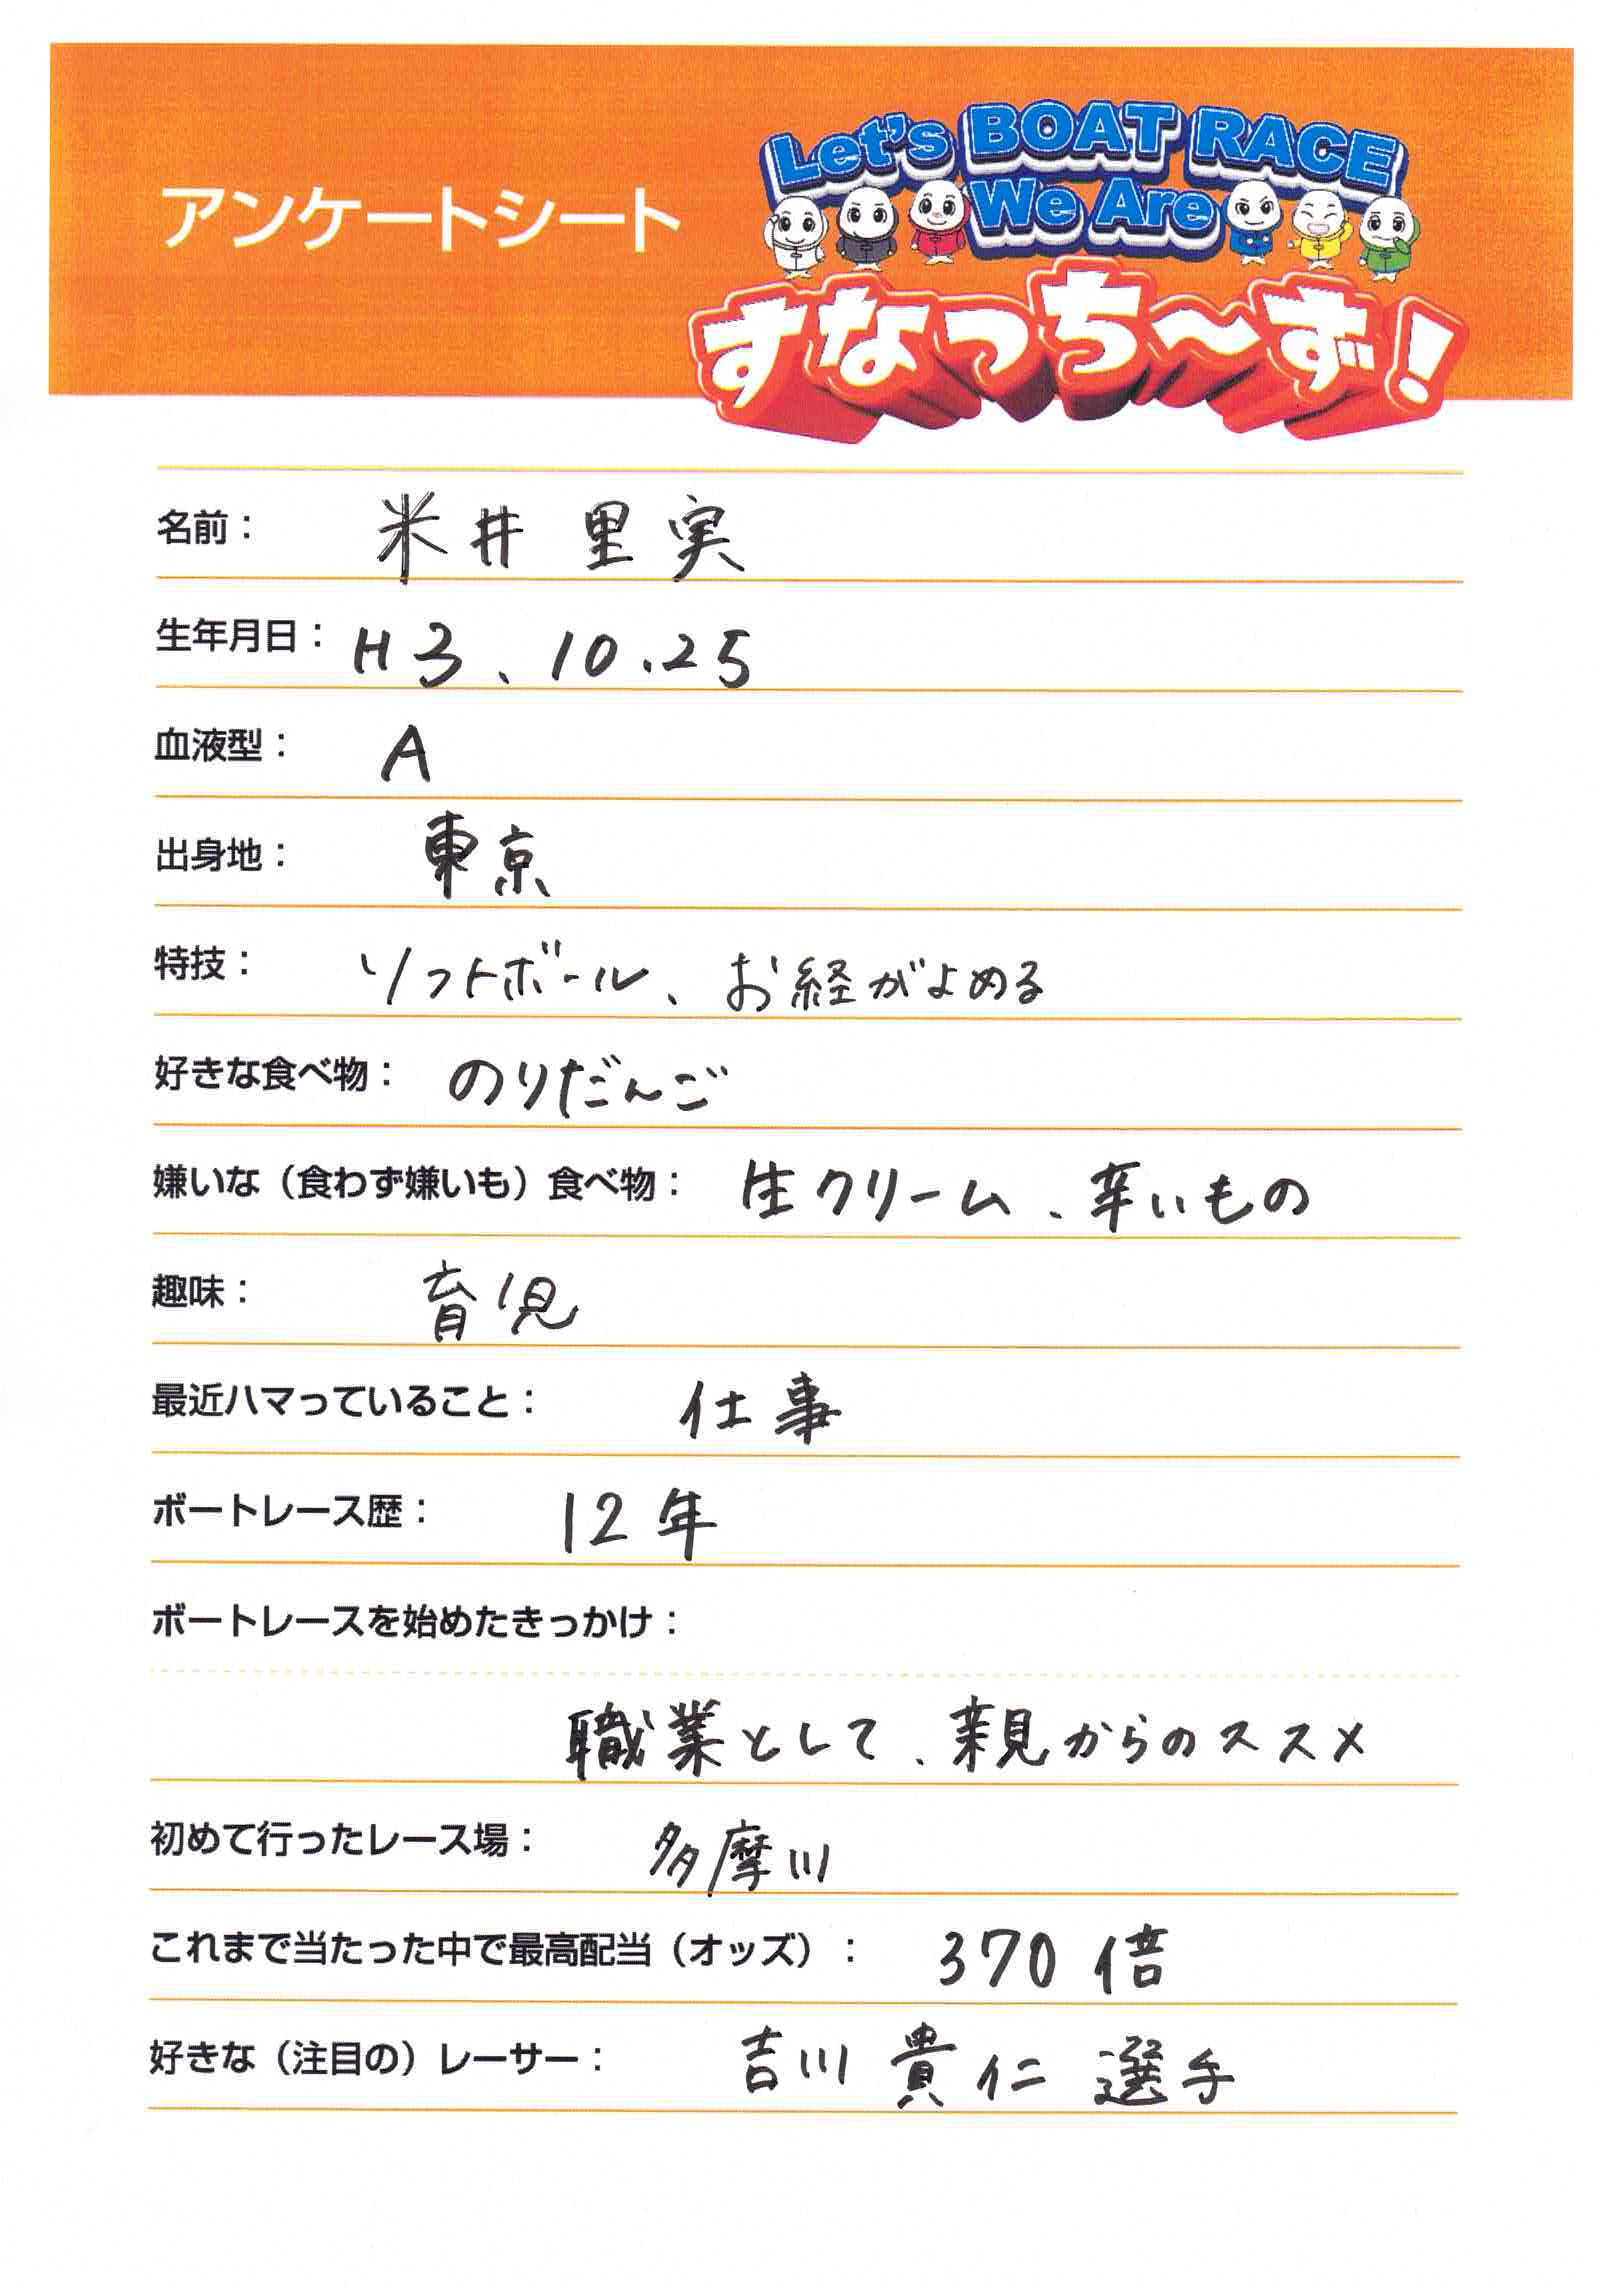 アンケートシート
Let's BOAT RACE
We Are
すなっち〜ず！
名前： 米井 里実
生年月日： H3、10.25
血液型： A
出身地： 東京
特技： ソフトボール、お経がよめる
好きな食べ物： のりだんご
嫌いな（食わず嫌いも）食べ物： 生クリーム、辛いもの
趣味： 育児
最近ハマっていること： 仕事
ボートレース歴： 12年
ボートレースを始めたきっかけ：
職業として、親からのススメ
初めて行ったレース場： 多摩川
これまで当たった中で最高配当（オッズ）： 370倍
好きな（注目の）レーサー： 吉川 貴仁 選手